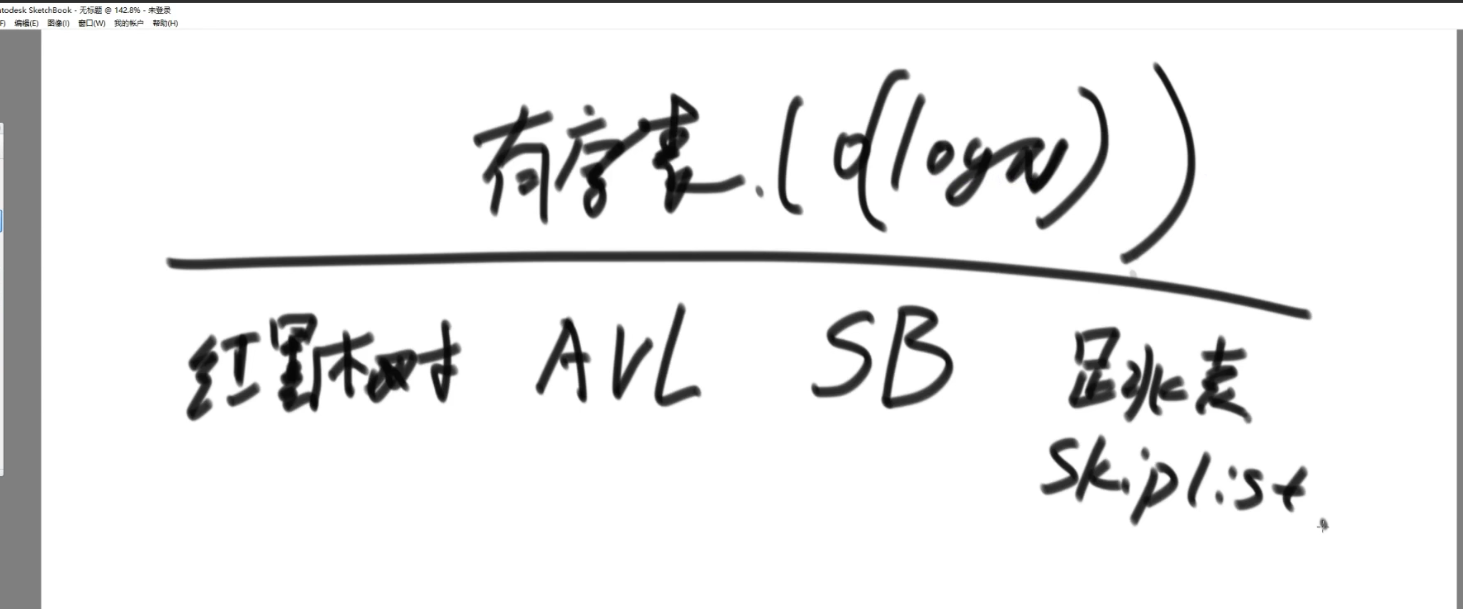 utodesk SketchBook - 无标题 @ 142.8% - 未登录
F) 编辑(E) 图像(I) 窗口(W) 我的帐户 帮助(H)
有序表.(O(logN))
红黑树 AVL SB 跳表
Skiplist.